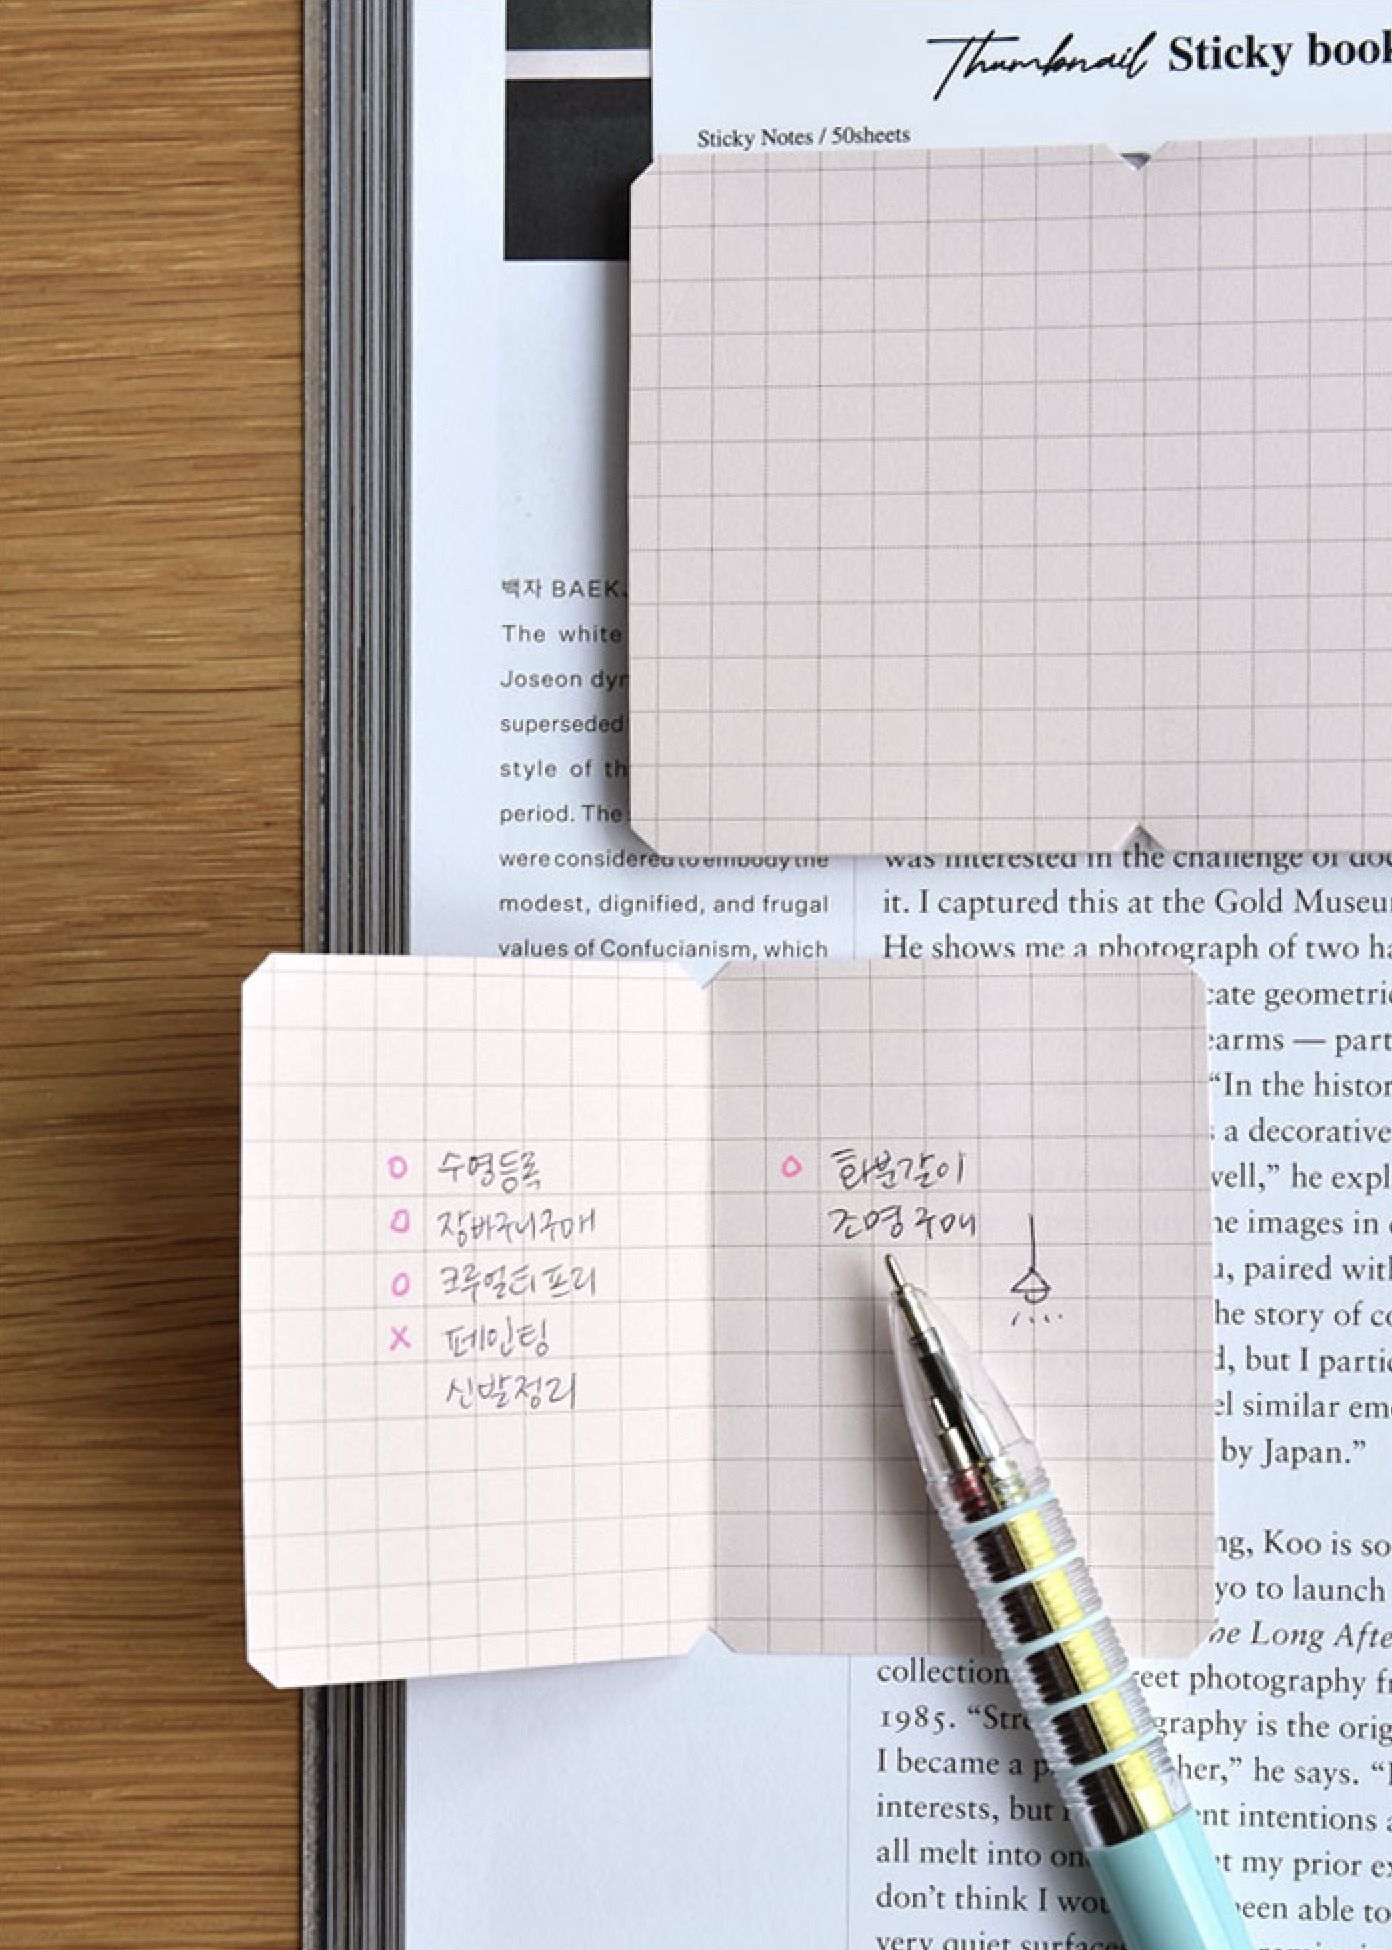 Thumbnail Sticky book
Sticky Notes / 50sheets
백자 BAEK
The white
Joseon dyn
superseded
style of th
period. The
were considered to embody the
modest, dignified, and frugal
values of Confucianism, which
was interested in the challenge of doc
it. I captured this at the Gold Museu
He shows me a photograph of two ha
cate geometric
earms — part
“In the histor
a decorative
well,” he expl
he images in
u, paired with
he story of co
d, but I partic
el similar emo
by Japan.”
ng, Koo is so
yo to launch
he Long Afte
collection reet photography fr
1985. “Stre graphy is the orig
I became a p her,” he says. “I
interests, but ent intentions a
all melt into on t my prior ex
don’t think I wou been able to
very quiet surface
O 수영등록
O 장바구니구매
O 크루얼티프리
X 페인팅
신발정리
O 화분갈이
조명구매